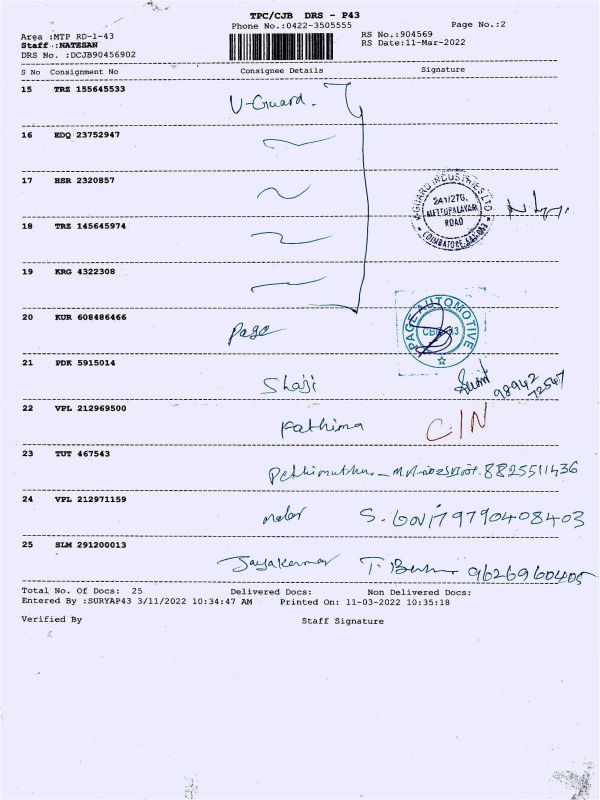 TPC/CJB DRS - P43
Phone No.:0422-3505555
Page No.:2
Area :MTP RD-1-43
RS No.:904569
Staff :NATESAN
RS Date:11-Mar-2022
DRS No. :DCJB90456902
S No Consignment No Consignee Details Signature
15 TRZ 155645533 V-Guard.
16 EDQ 23752947
17 HSR 2320857
V-GUARD INDUSTRIES LTD
METTUPALAYAM
ROAD
18 TRZ 145645974
19 KRG 4322308
20 KUR 608486466 Page
PAGE AUTOMOTIVE
21 PDK 5915014 Shaji 98942
72547
22 VPL 212969500 Fathima C/N
23 TUT 467543 8825511436
24 VPL 212971159 S. 9790408403
25 SLM 291200013 Jayakumar T. 9626960405
Total No. Of Docs: 25 Delivered Docs: Non Delivered Docs:
Entered By :SURYAP43 3/11/2022 10:34:47 AM Printed On: 11-03-2022 10:35:18
Verified By Staff Signature